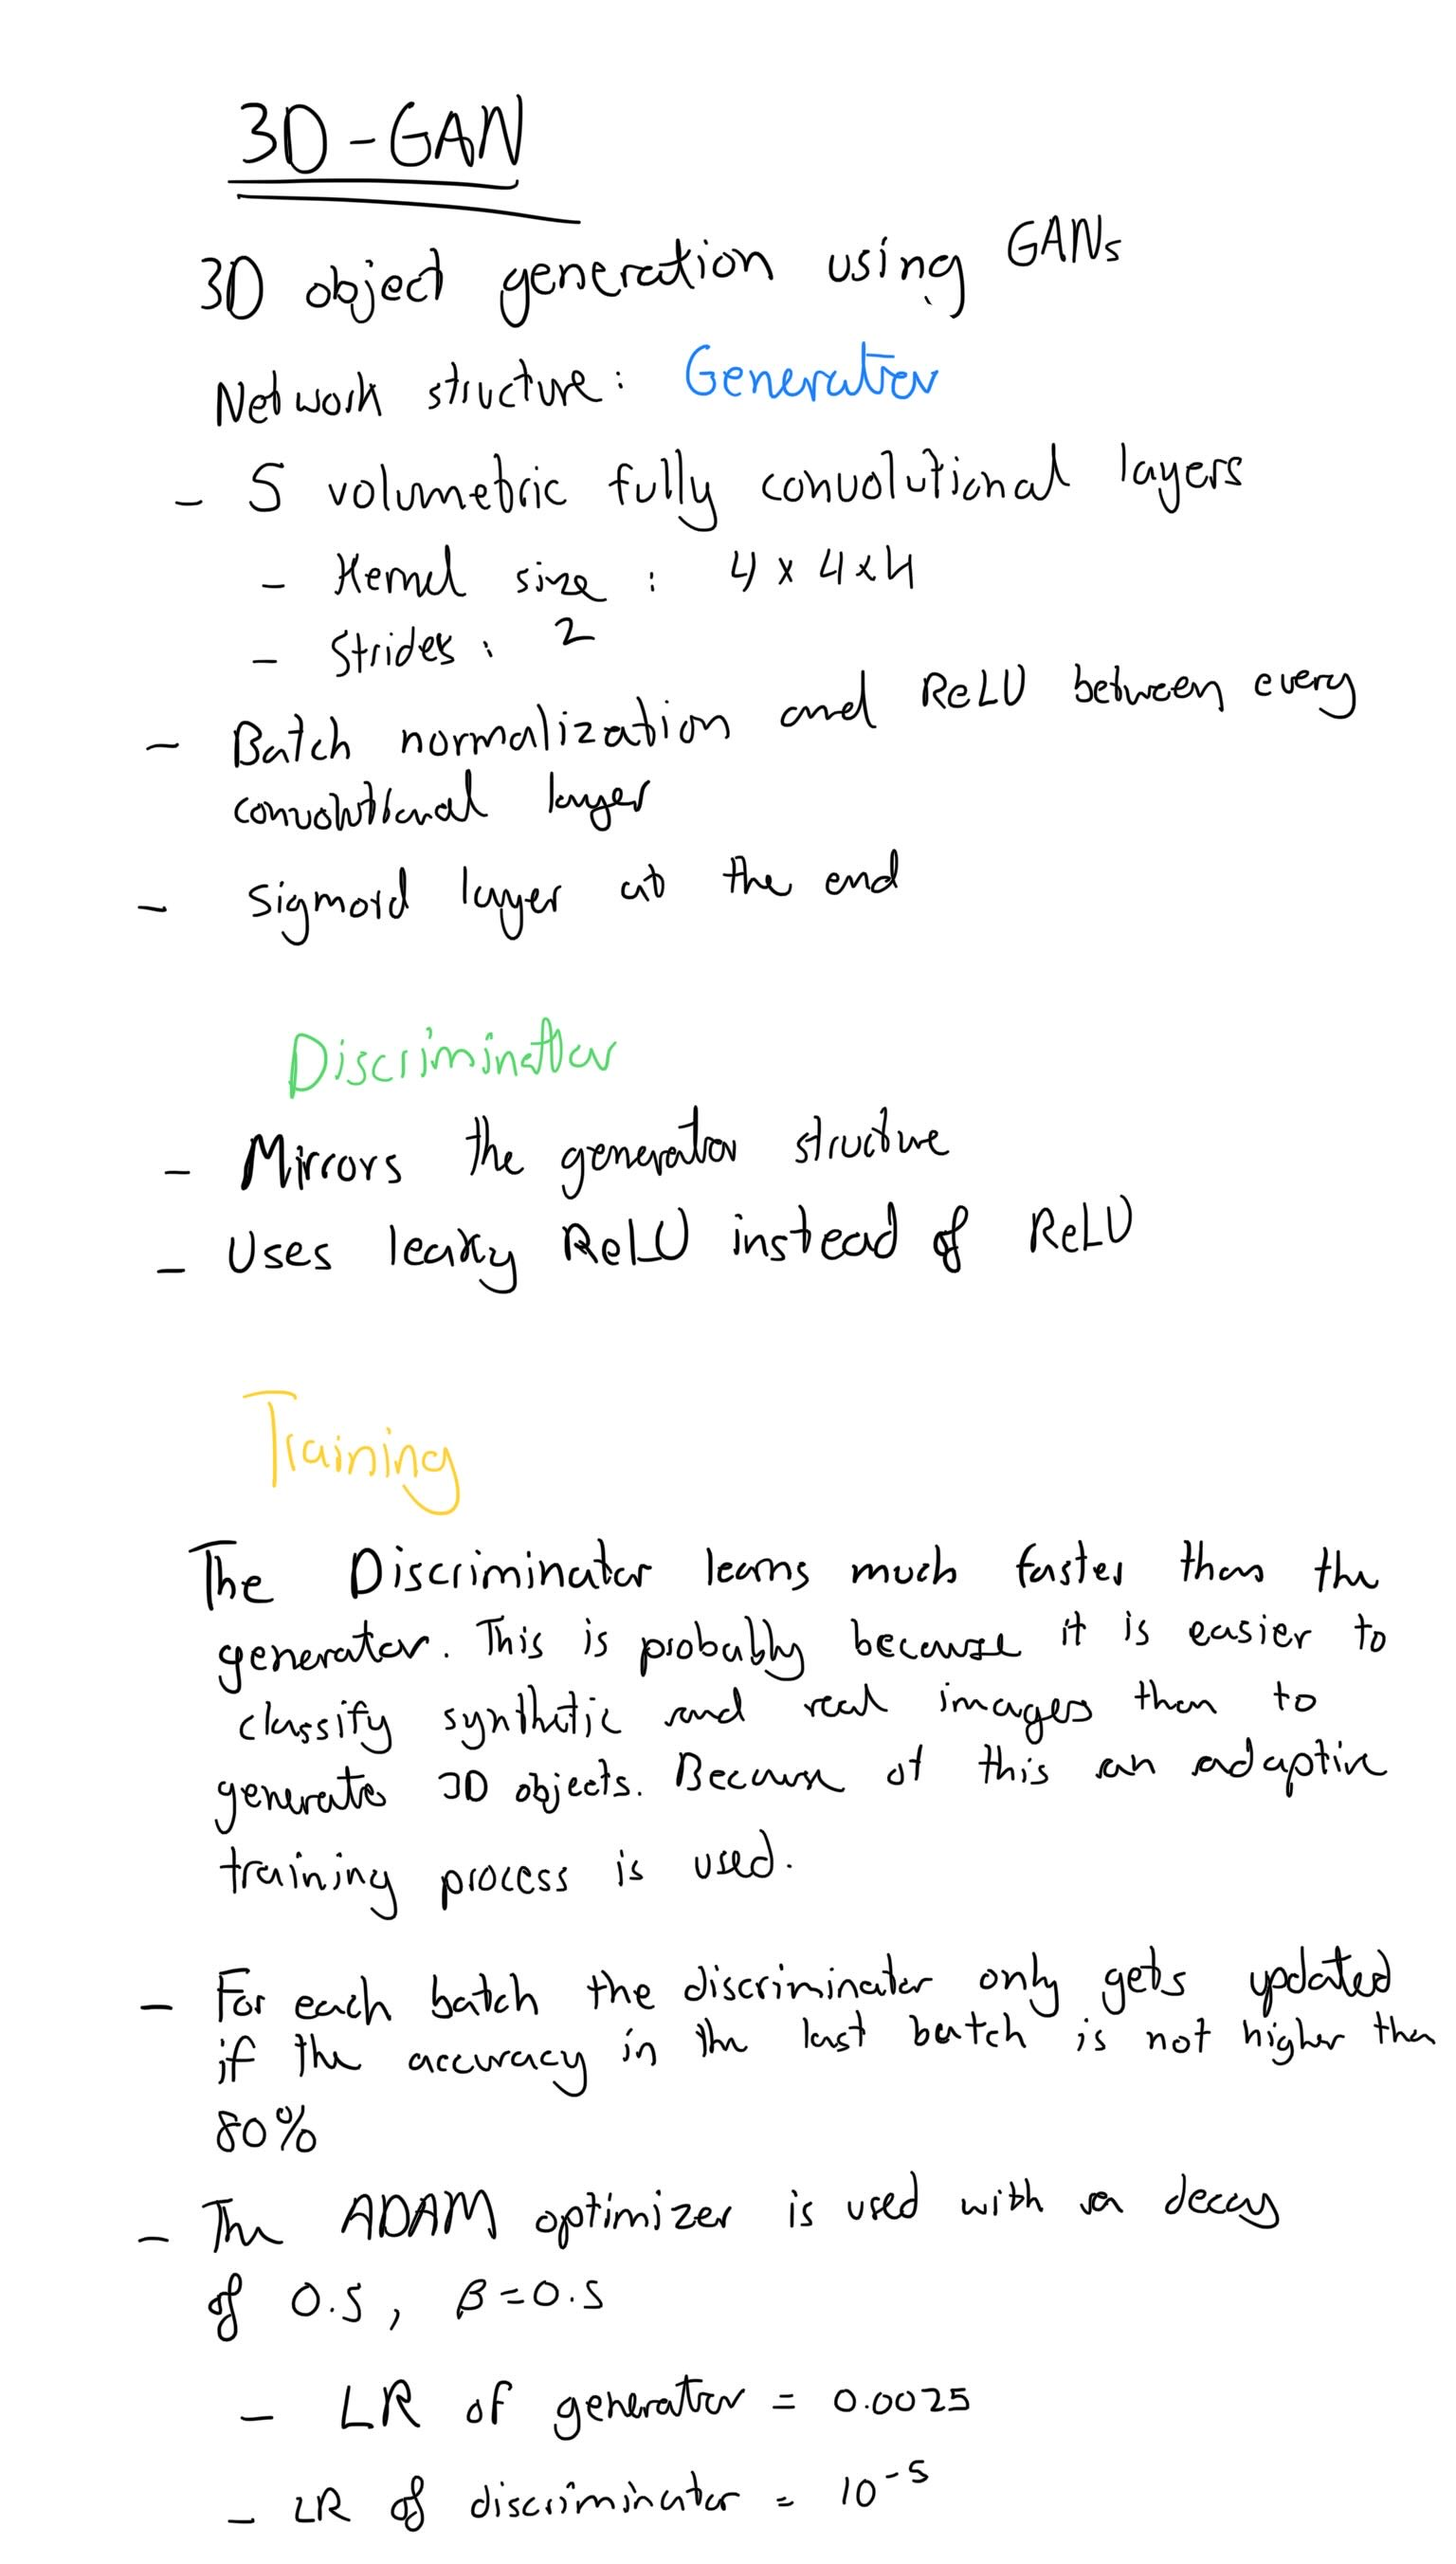 3D-GAN
3D object generation using GANs
Network structure: Generator
- 5 volumetric fully convolutional layers
- Kernel size : 4 x 4 x 4
- Strides : 2
- Batch normalization and ReLU between every
convolutional layer
- Sigmoid layer at the end
Discriminator
- Mirrors the generator structure
- Uses leaky ReLU instead of ReLU
Training
The Discriminator learns much faster than the
generator. This is probably because it is easier to
classify synthetic and real images than to
generate 3D objects. Because of this an adaptive
training process is used.
- For each batch the discriminator only gets updated
if the accuracy in the last batch is not higher than
80%
- The ADAM optimizer is used with a decay
of 0.5, β=0.5
- LR of generator = 0.0025
- LR of discriminator = 10⁻⁵